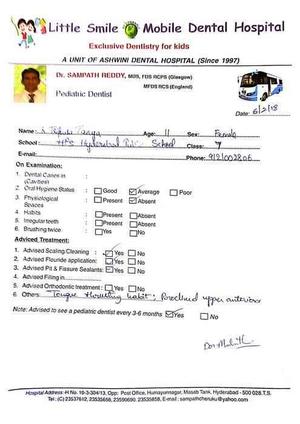 Little Smile Mobile Dental Hospital
Exclusive Dentistry for kids
A UNIT OF ASHWINI DENTAL HOSPITAL (Since 1997)
Dr. SAMPATH REDDY, MDS, FDS RCPS (Glasgow)
MFDS RCS (England)
Pediatric Dentist
Date: 6/2/18
Name: Age: 11 Sex: Female
School: Hyderabad School Class:
E-mail: Phone: 9121002806
On Examination:
1. Dental Caries in (Cavities) :
2. Oral Hygiene Status : Good Average Poor
3. Physiological Spaces : Present Absent
4. Habits : Present Absent
5. Irregular teeth : Present Absent
6. Brushing twice : Yes No
Adviced Treatment:
1. Advised Scaling Cleaning : Yes No
2. Advised Flouride application: Yes No
3. Advised Pit & Fissure Sealants: Yes No
4. Advised Filling in
5. Advised Orthodontic treatment : Yes No
6. Others Tongue thrusting habit; Proclined upper anteriors
Note: Advised to see a pediatric dentist every 3-6 months Yes No
Hospital Address -H No. 10-3-304/13, Opp: Post Office, Humayunnagar, Masab Tank, Hyderabad - 500 028.T.S.
Tel: (C) 23537612, 23535658, 23590690, 23535858, E-mail : sampathcheruku@yahoo.com